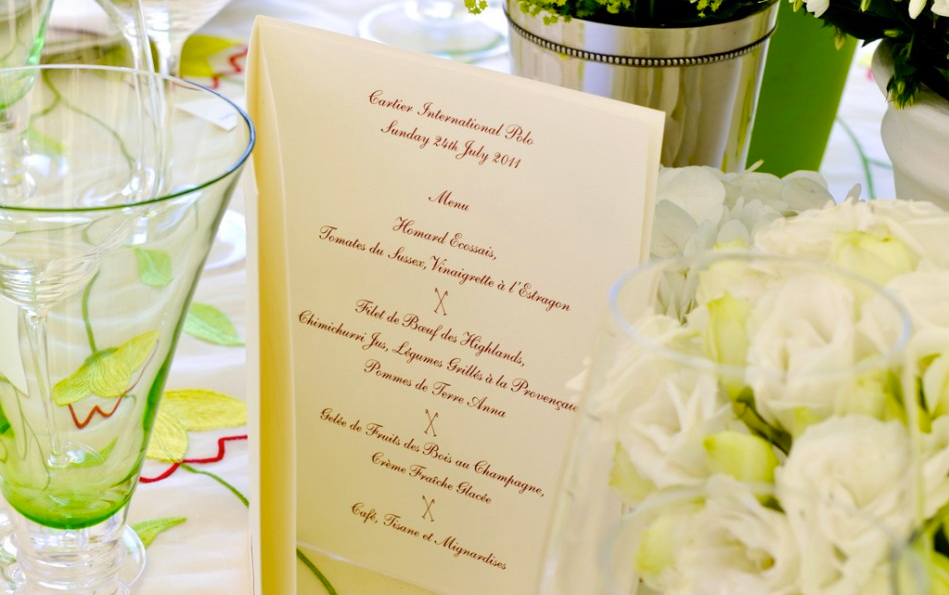 Cartier International Polo
Sunday 24th July 2011
Menu
Homard Ecossais,
Tomates du Sussex, Vinaigrette à l'Estragon
Filet de Bœuf des Highlands,
Chimichurri Jus, Légumes Grillés à la Provençale
Pommes de Terre Anna
Gelée de Fruits des Bois au Champagne,
Crème Fraîche Glacée
Café, Tisane et Mignardises